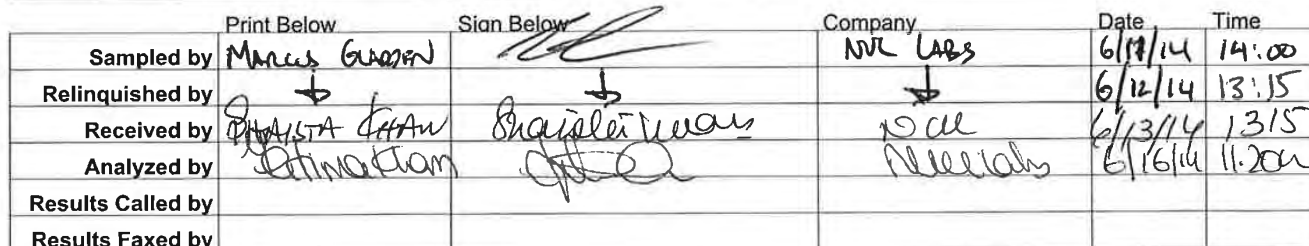 Print Below Sign Below Company Date Time
Sampled by Marcus Gladden NVL LABS 6/11/14 14:00
Relinquished by ↓ ↓ ↓ 6/12/14 13:15
Received by SHAISTA KHAN Shaista Khan NVL 6/13/14 1315
Analyzed by Fatima Khan NVL Labs 6/16/14 11:20a
Results Called by
Results Faxed by